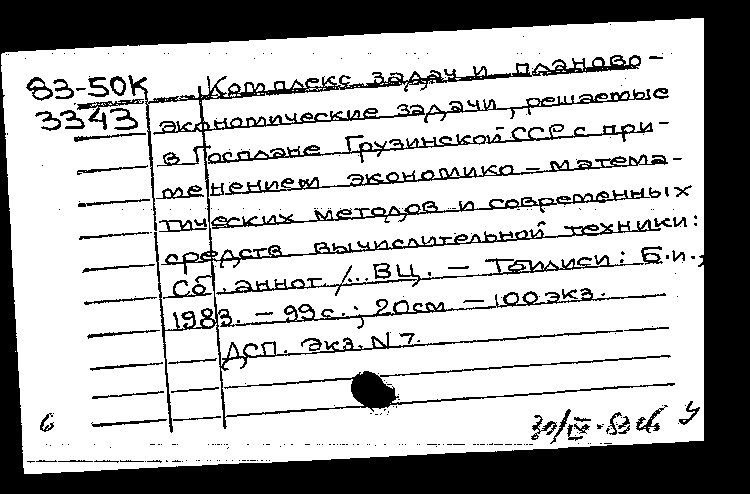 83-50К Комплекс задач и планово-
3343 экономические задачи, решаемые
в Госплане Грузинской ССР с при-
менением экономико-матема-
тических методов и современных
средств вычислительной техники:
Сб. аннот. /... ВЦ. — Тбилиси: Б.и.,
1983. — 99 с.; 20 см — 100 экз.
ДСП. Экз. N 7.
6 30/IV-83